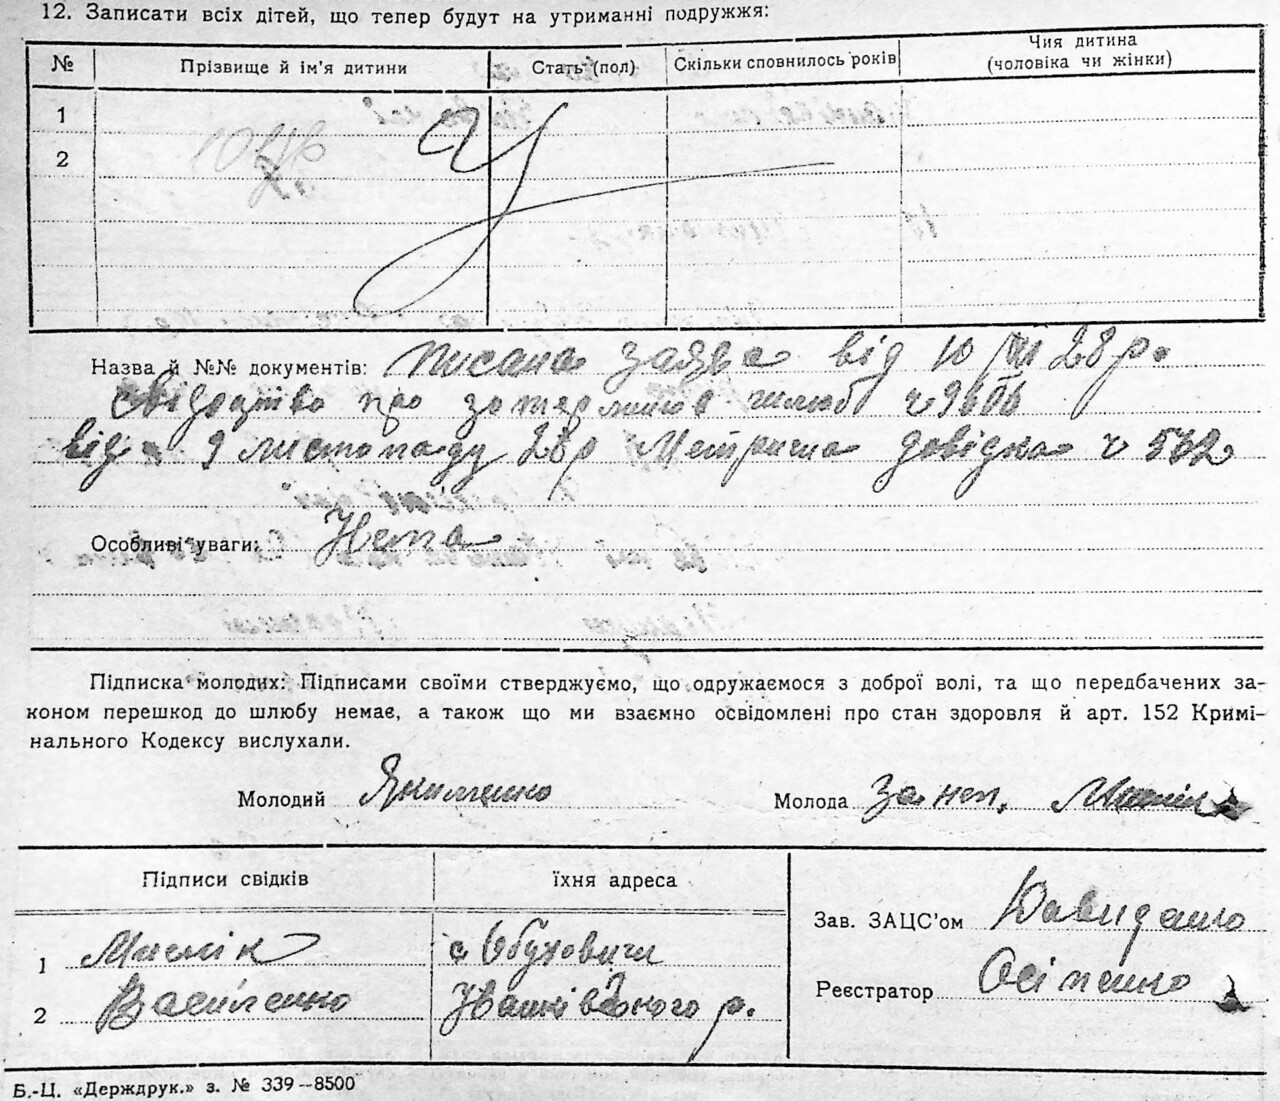 12. Записати всіх дітей, що тепер будут на утриманні подружжя:
№ Прізвище й ім'я дитини Стать (пол) Скільки сповнилось років Чия дитина (чоловіка чи жінки)
1
2
Назва й №№ документів: писана заява від 10 28 р.
свідоцтво про
від 9 листопаду 28 р Метрична довідка ч 502
Особливі уваги: Нема
Підписка молодих: Підписами своїми стверджуємо, що одружаємося з доброї волі, та що передбачених за-
коном перешкод до шлюбу немає, а також що ми взаємно освідомлені про стан здоровля й арт. 152 Кримі-
нального Кодексу вислухали.
Молодий Якименко Молода За неп.
Підписи свідків їхня адреса
Зав. ЗАЦС'ом Давиденко
1 Мисник с Обуховичи
Реєстратор Осіпенко
2 Василенко Іванківського р.
Б.-Ц. «Держдрук.» з. № 339–8500